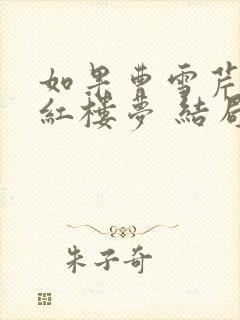 如果曹雪芹
紅樓夢 結局
朱子奇